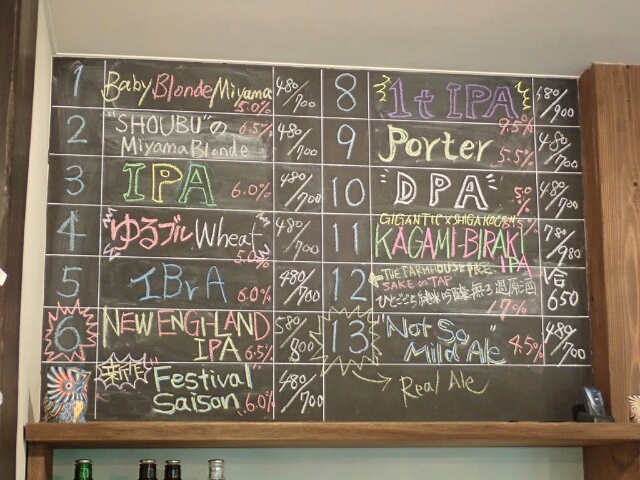 1 Baby Blonde Miyama 5.0% 480/700
2 "SHOUBU"の 6.5% 480/700
Miyama Blonde
3 IPA 6.0% 480/700
4 ゆるブル Wheat 5.0% 480/700
5 IBrA 6.0% 480/700
6 NEW ENGLAND 580/800
IPA 6.5%
新作 "Festival 480/700
Saison" 6.0%
8 1t IPA 9.5% 580/900
9 Porter 5.5% 480/700
10 "DPA" 5.0% 480/700
GIGANTIC x SHIGA KOGEN
11 KAGAMI-BIRAKI 780/980
IPA
12 THE FARMHOUSE RICE 1合
SAKE ON TAP 650
ひとごこち純米吟醸無ろ過原酒
17%
13 "Not So 480/700
Mild Ale" 4.5%
Real Ale